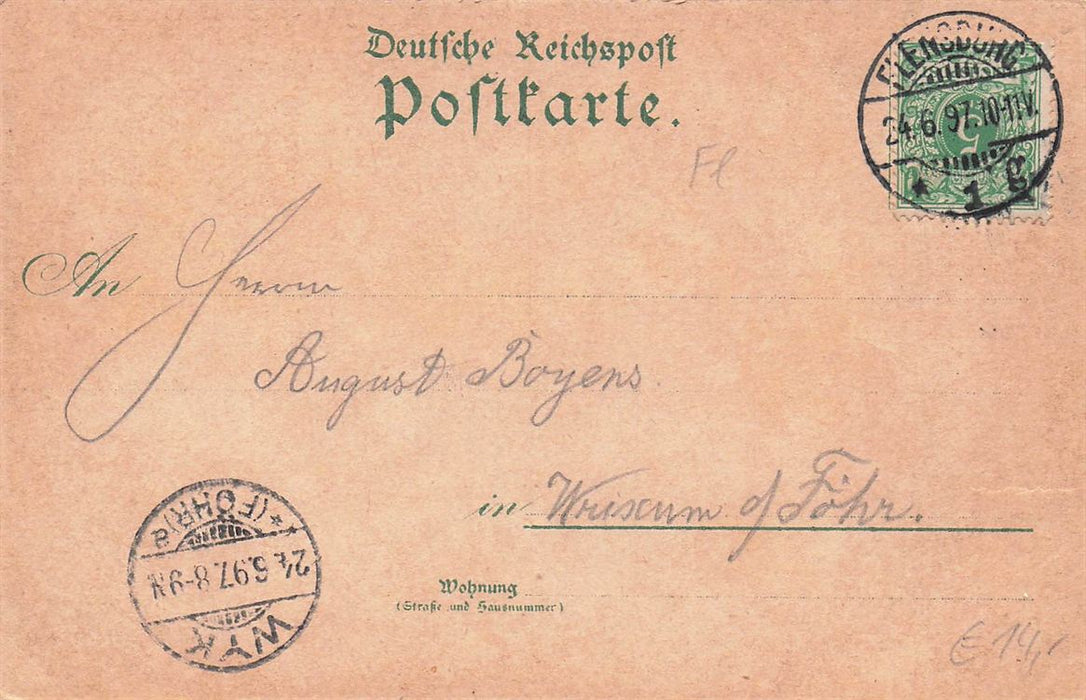 Deutsche Reichspost
Postkarte.
FLENSBURG
24.6.97.10-11V.
* 1 g
Fl
An Herrn
August Boyens
in Wrixum a/Föhr.
* (FÖHR) a
24.6.97.8-9N.
WYK
Wohnung
(Straße und Hausnummer)
€ 14,-